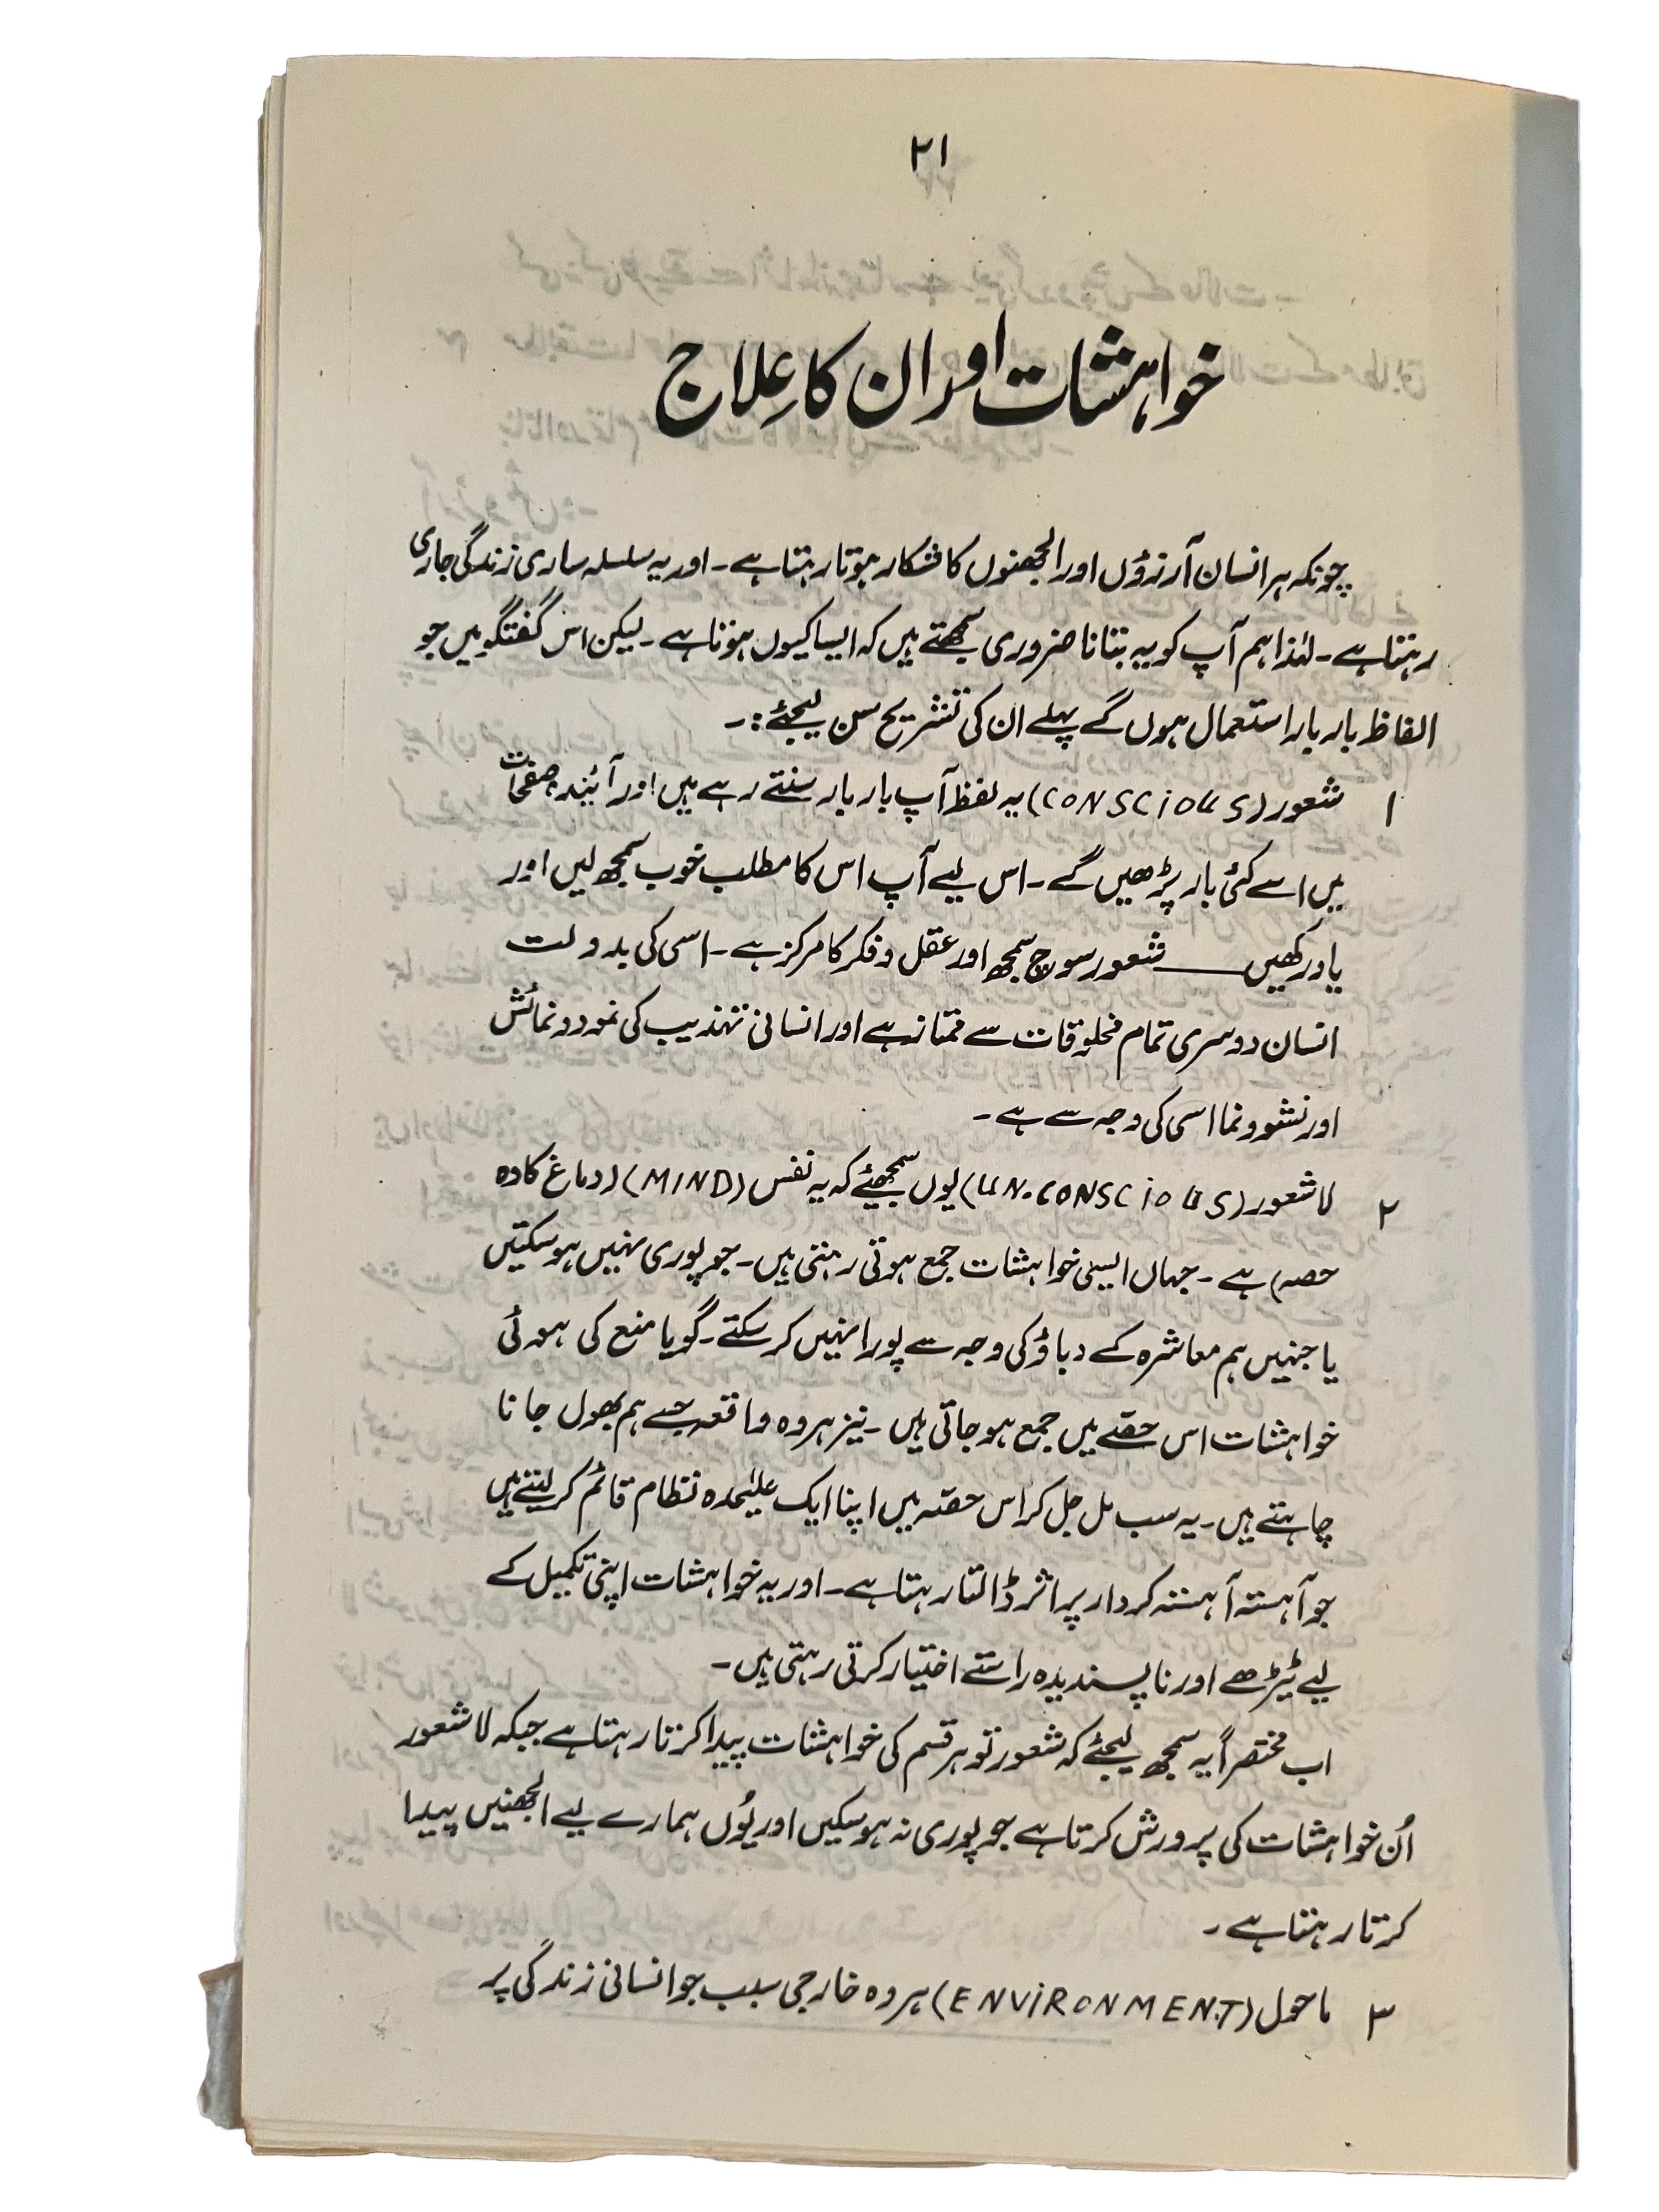 ۲۱
خواہشات اور ان کا عِلاج
چونکہ ہر انسان آرزوؤں اور الجھنوں کا شکار ہوتا رہتا ہے۔ اور یہ سلسلہ ساری زندگی جاری
رہتا ہے۔ لہٰذا ہم آپ کو یہ بتانا ضروری سمجھتے ہیں کہ ایسا کیوں ہوتا ہے۔ لیکن اس گفتگو میں جو
الفاظ بار بار استعمال ہوں گے پہلے ان کی تشریح سن لیجئے:۔
۱ شعور (CONSCiOUS) یہ لفظ آپ بار بار سنتے رہے ہیں اور آئندہ صفحات
میں اسے کئی بار پڑھیں گے۔ اس لیے آپ اس کا مطلب خوب سمجھ لیں اور
یاد رکھیں ــــ شعور سوچ سمجھ اور عقل و فکر کا مرکز ہے۔ اسی کی بدولت
انسان دوسری تمام مخلوقات سے ممتاز ہے اور انسانی تہذیب کی نمود و نمائش
اور نشوونما اسی کی وجہ سے ہے۔
۲ لاشعور (UN.CONSCiOUS) یوں سمجھئے کہ یہ نفس (MIND) (دماغ کا وہ
حصہ) ہے۔ جہاں ایسی خواہشات جمع ہوتی رہتی ہیں۔ جو پوری نہیں ہو سکتیں
یا جنہیں ہم معاشرہ کے دباؤ کی وجہ سے پورا نہیں کر سکتے۔ گویا منع کی ہوئی
خواہشات اس حصّے میں جمع ہو جاتی ہیں۔ نیز ہر وہ واقعہ جسے ہم بھول جانا
چاہتے ہیں۔ یہ سب مل جل کر اس حصّہ میں اپنا ایک علیٰحدہ نظام قائم کر لیتے ہیں
جو آہستہ آہستہ کردار پر اثر ڈالتا رہتا ہے۔ اور یہ خواہشات اپنی تکمیل کے
لیے ٹیڑھے اور ناپسندیدہ راستے اختیار کرتی رہتی ہیں۔
اب مختصراً یہ سمجھ لیجئے کہ شعور تو ہر قسم کی خواہشات پیدا کرتا رہتا ہے جبکہ لاشعور
اُن خواہشات کی پرورش کرتا ہے جو پوری نہ ہو سکیں اور یُوں ہمارے لیے الجھنیں پیدا
کرتا رہتا ہے۔
۳ ماحول (ENViRONMENT) ہر وہ خارجی سبب جو انسانی زندگی پر